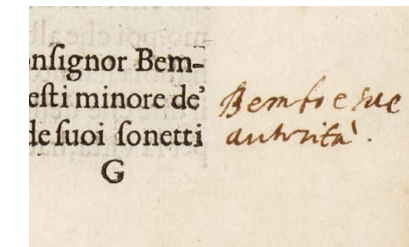 onſignor Bem-
eſti minore de'
de ſuoi ſonetti
G
Bembo e sue
autorità.